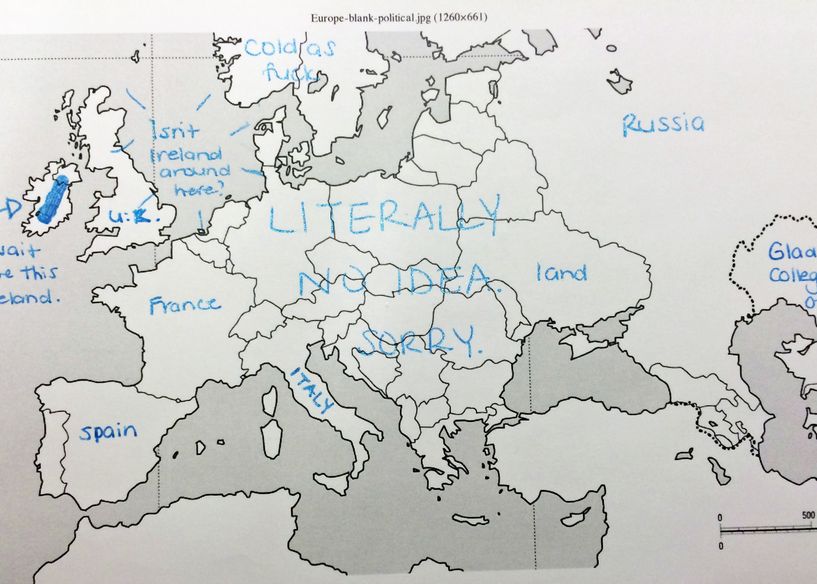 Europe-blank-political.jpg (1260×661)
Cold as
fuck
Isn't
Ireland
around
here?
Russia
U.K.
wait
this
LITERALLY
NO IDEA.
SORRY.
land
France
ITALY
Spain
0
500
0